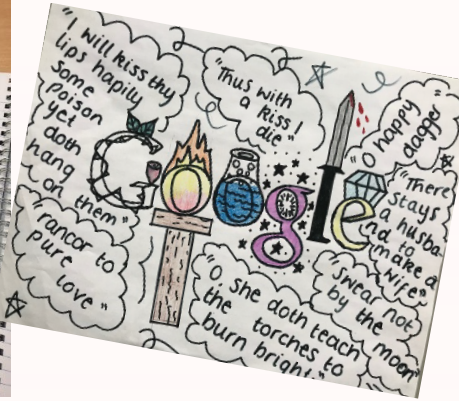 "I will kiss thy
lips hapily
some
poison
yet
doth
hang
on them"
"Thus with
a kiss I
die"
"O happy
dagge
Google
"There
stays
a husba-
nd to
make a
wife"
"rancor to
pure love"
"O she doth teach
the torches to
burn bright"
"swear not
by the moon"